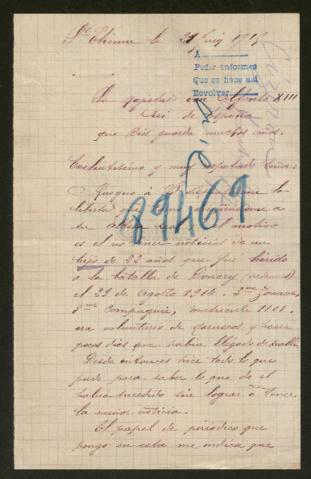 St Etienne le 21 1915
A
Pedir informes
Que se hace así
Devolver
Su Majestad Don Alfonso XIII
Rei de España
que Dios guarde muchos años.
Exelentisimo y muy respetado Señor
Ruegue à V dispense la
libertad que
su el motivo
es el no tener noticias de un
hijo de 22 años que fué hérido
à la batalla de
el 22 de Agosto 1914. 2me Zouaves,
Compagnie, matricule 1101.
era voluntario de y hacia
pocos dias que habia llegado de
Desde entonces hice todo lo que
pude para saber lo que de el
habia sucedido sin lograr tener
la menor noticia.
El papel de periodico que
pongo en esta me indica que
89469